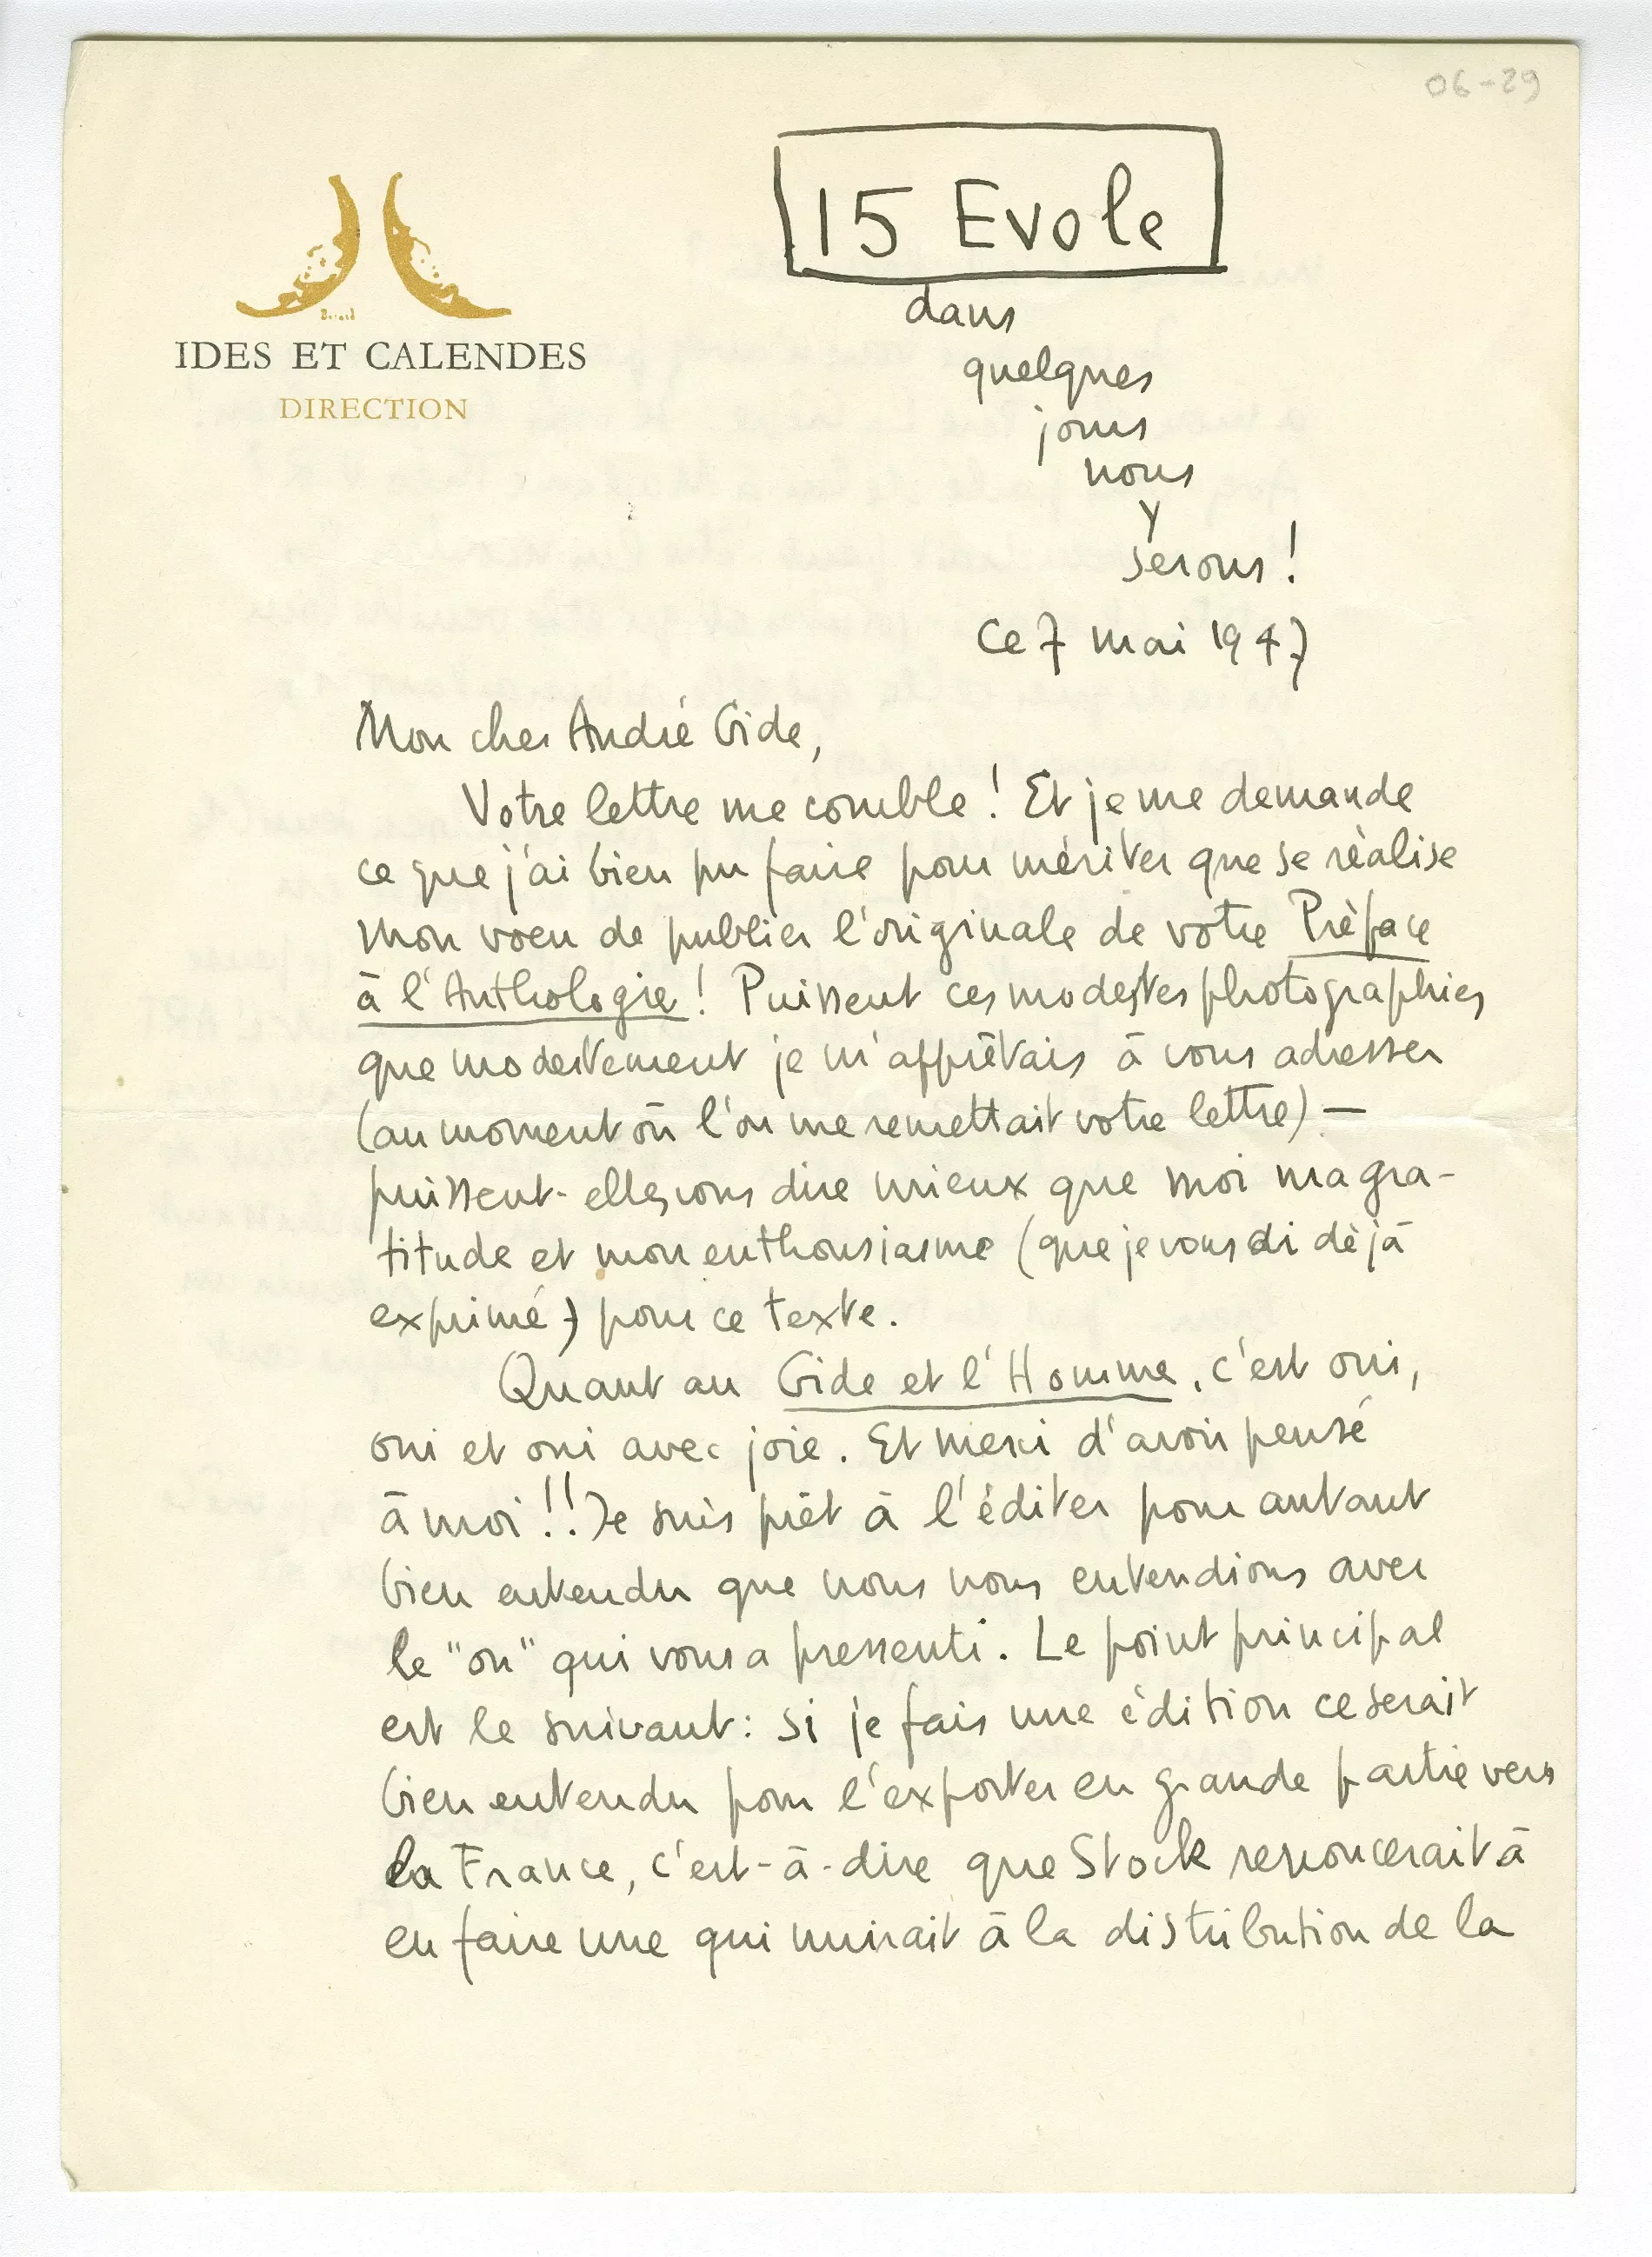 06-29
15 Evole
dans
quelques
jours
nous
y
serons !
IDES ET CALENDES
DIRECTION
Ce 7 mai 1947
Mon cher André Gide,
Votre lettre me comble ! Et je me demande
ce que j'ai bien pu faire pour mériter que se réalise
mon voeu de publier l'originale de votre Préface
à l'Anthologie ! Puissent ces modestes photographies
que modestement je m'apprêtais à vous adresser
(au moment où l'on me remettait votre lettre) —
puissent-elles vous dire mieux que moi ma gra-
titude et mon enthousiasme (que je vous ai déjà
exprimé) pour ce texte.
Quant au Gide et l'Homme, c'est oui,
oui et oui avec joie. Et merci d'avoir pensé
à moi !! Je suis prêt à l'éditer pour autant
bien entendu que nous nous entendions avec
le "on" qui vous a pressenti. Le point principal
est le suivant : si je fais une édition ce serait
bien entendu pour l'exporter en grande partie vers
la France, c'est-à-dire que Stock renoncerait à
en faire une qui nuirait à la distribution de la